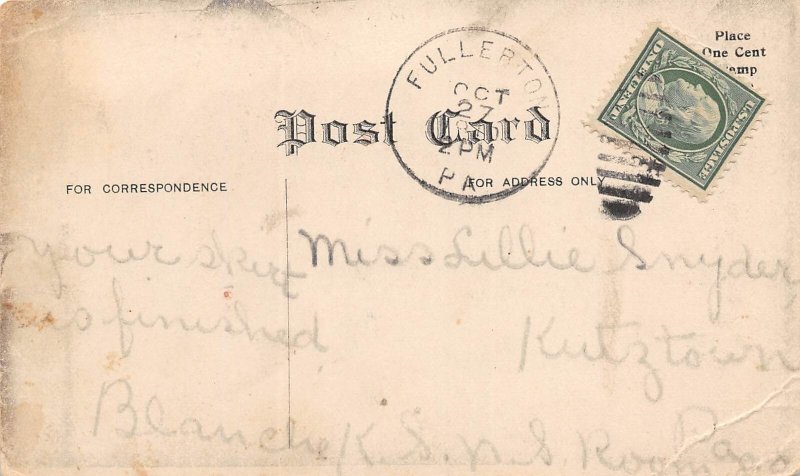 Place
One Cent
Stamp
FULLERTON
OCT
27
2 PM
PA
Post Card
FOR CORRESPONDENCE
FOR ADDRESS ONLY
your skirt
is finished
Blanche
Miss Lillie Snyder,
Kutztown
Pa
K. S. N. S. Room